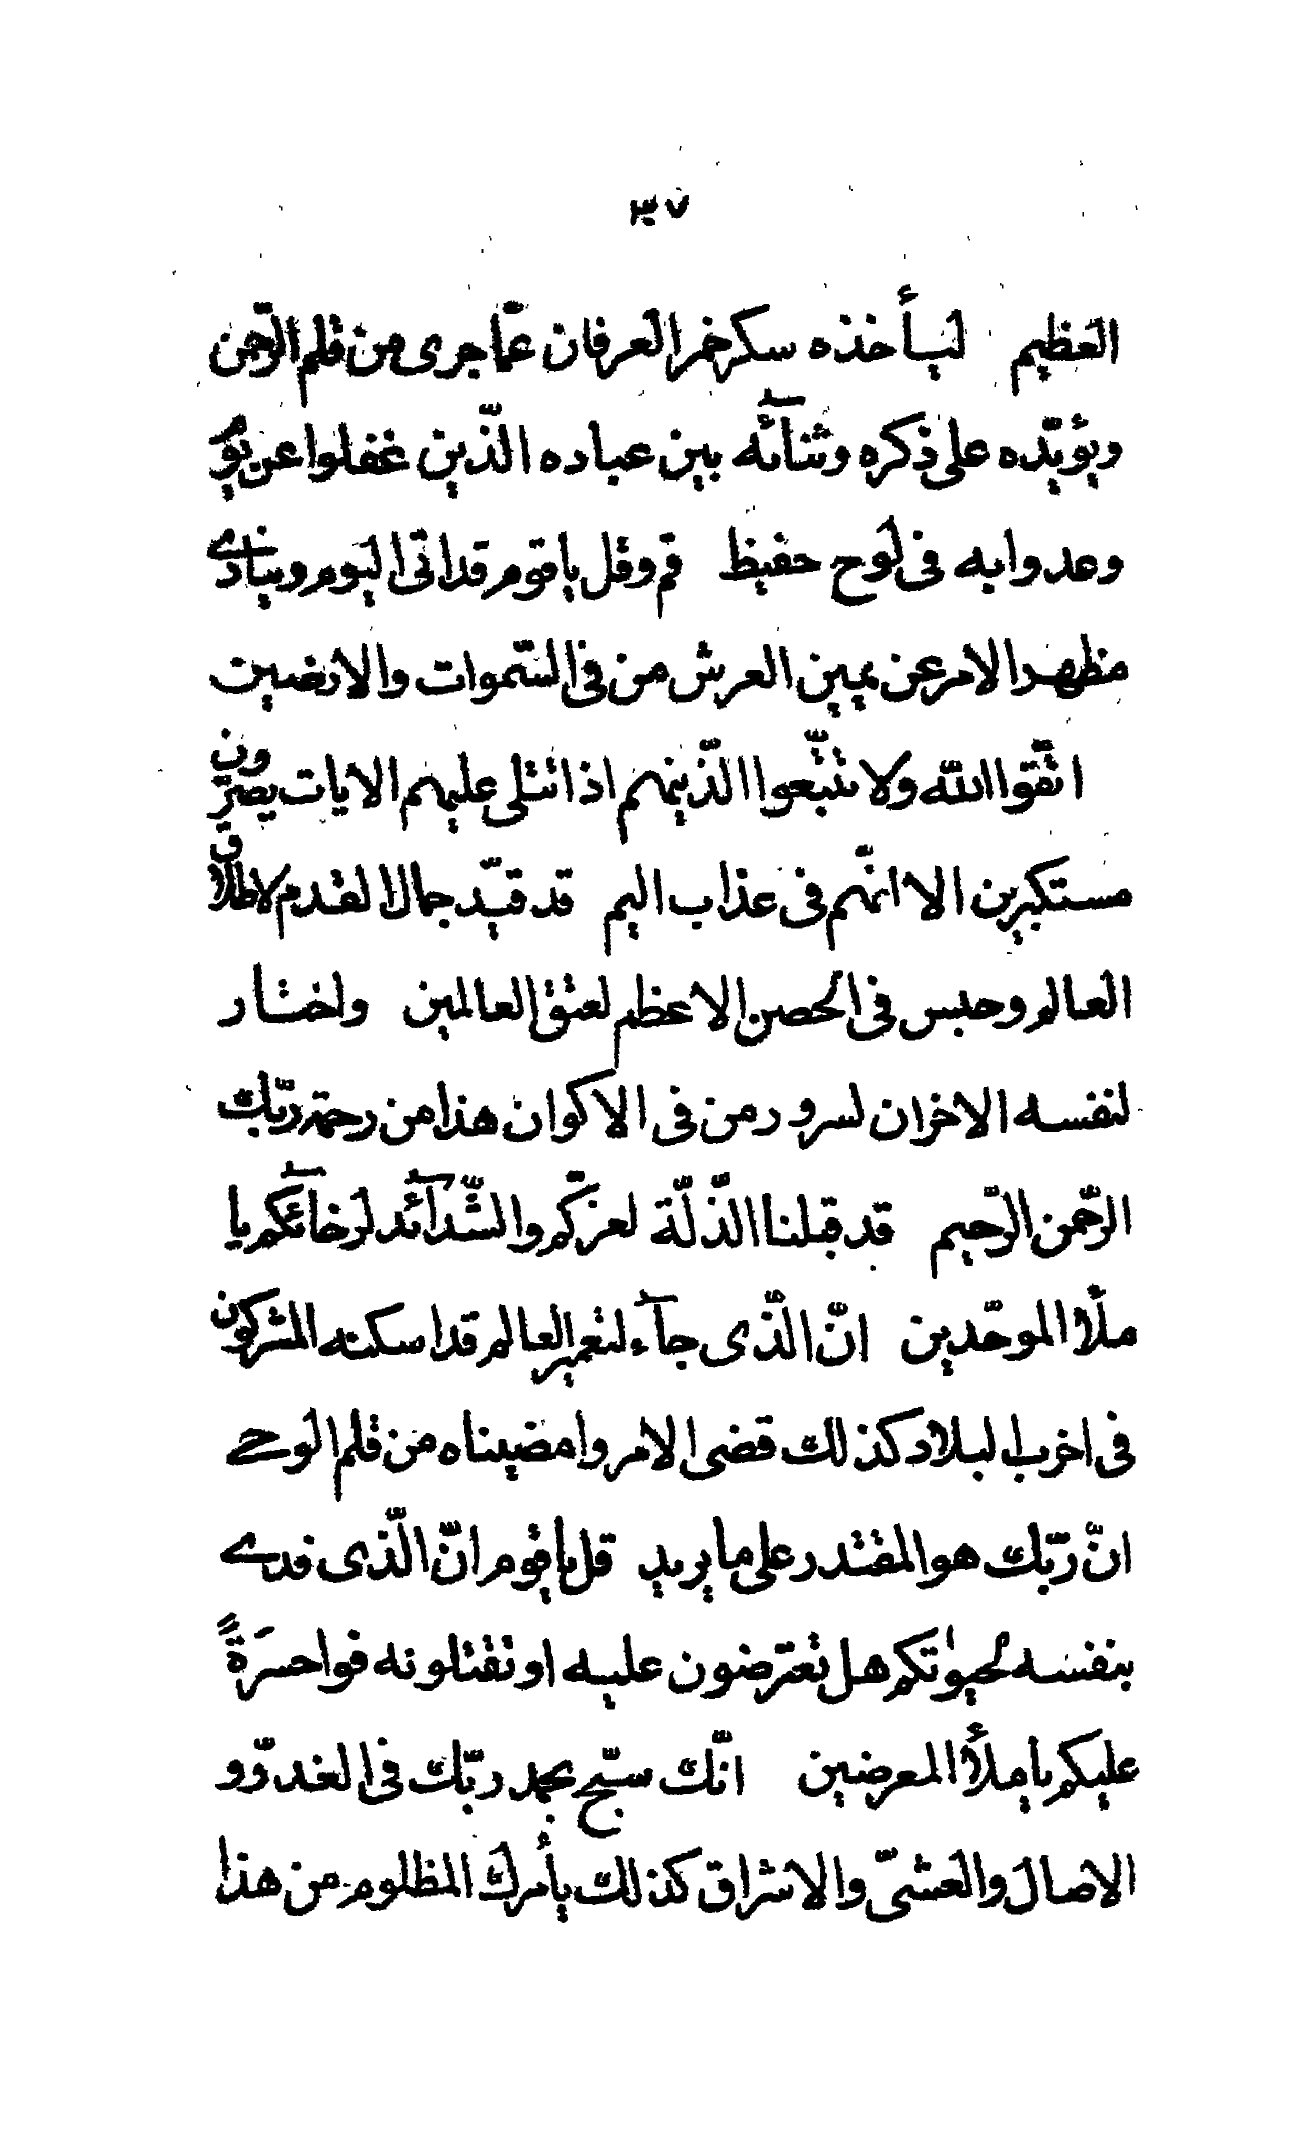 ٣٧
العظيم ليأخذه سكر خمر العرفان عمّا جرى من قلم الرّحمن
ويؤيّده على ذكره وثنآئه بين عباده الّذين غفلوا عن يوم
وعدوا به فى لوح حفيظ قم وقل يا قوم قد اتى اليوم وينادى
مظهر الامر عن يمين العرش من فى السّموات والارضين
اتّقوا الله ولا تتّبعوا الّذينهم اذا تتلى عليهم الايات يصرّون
مستكبرين الا انّهم فى عذاب اليم قد قيّد جمال القدم لاطلاق
العالم وحبس فى الحصن الاعظم لعتق العالمين واختار
لنفسه الاحزان لسرور من فى الاكوان هذا من رحمة ربّك
الرّحمن الرّحيم قد قبلنا الذّلّة لعزّكم والشّدآئد لرخآئكم يا
ملأ الموحّدين انّ الّذى جآء لتعمير العالم قد اسكنه المشركون
فى اخرب البلاد كذلك قضى الامر وامضيناه من قلم الوحى
انّ ربّك هو المقتدر على ما يريد قل يا قوم انّ الّذى فدى
بنفسه لحيوٰتكم هل تعترضون عليه او تقتلونه فواحسرَةً
عليكم يا ملأ المعرضين انّك سبّح بحمد ربّك فى الغدوّ و
الاصال والعشىّ والاشراق كذلك يأمرك المظلوم من هذا